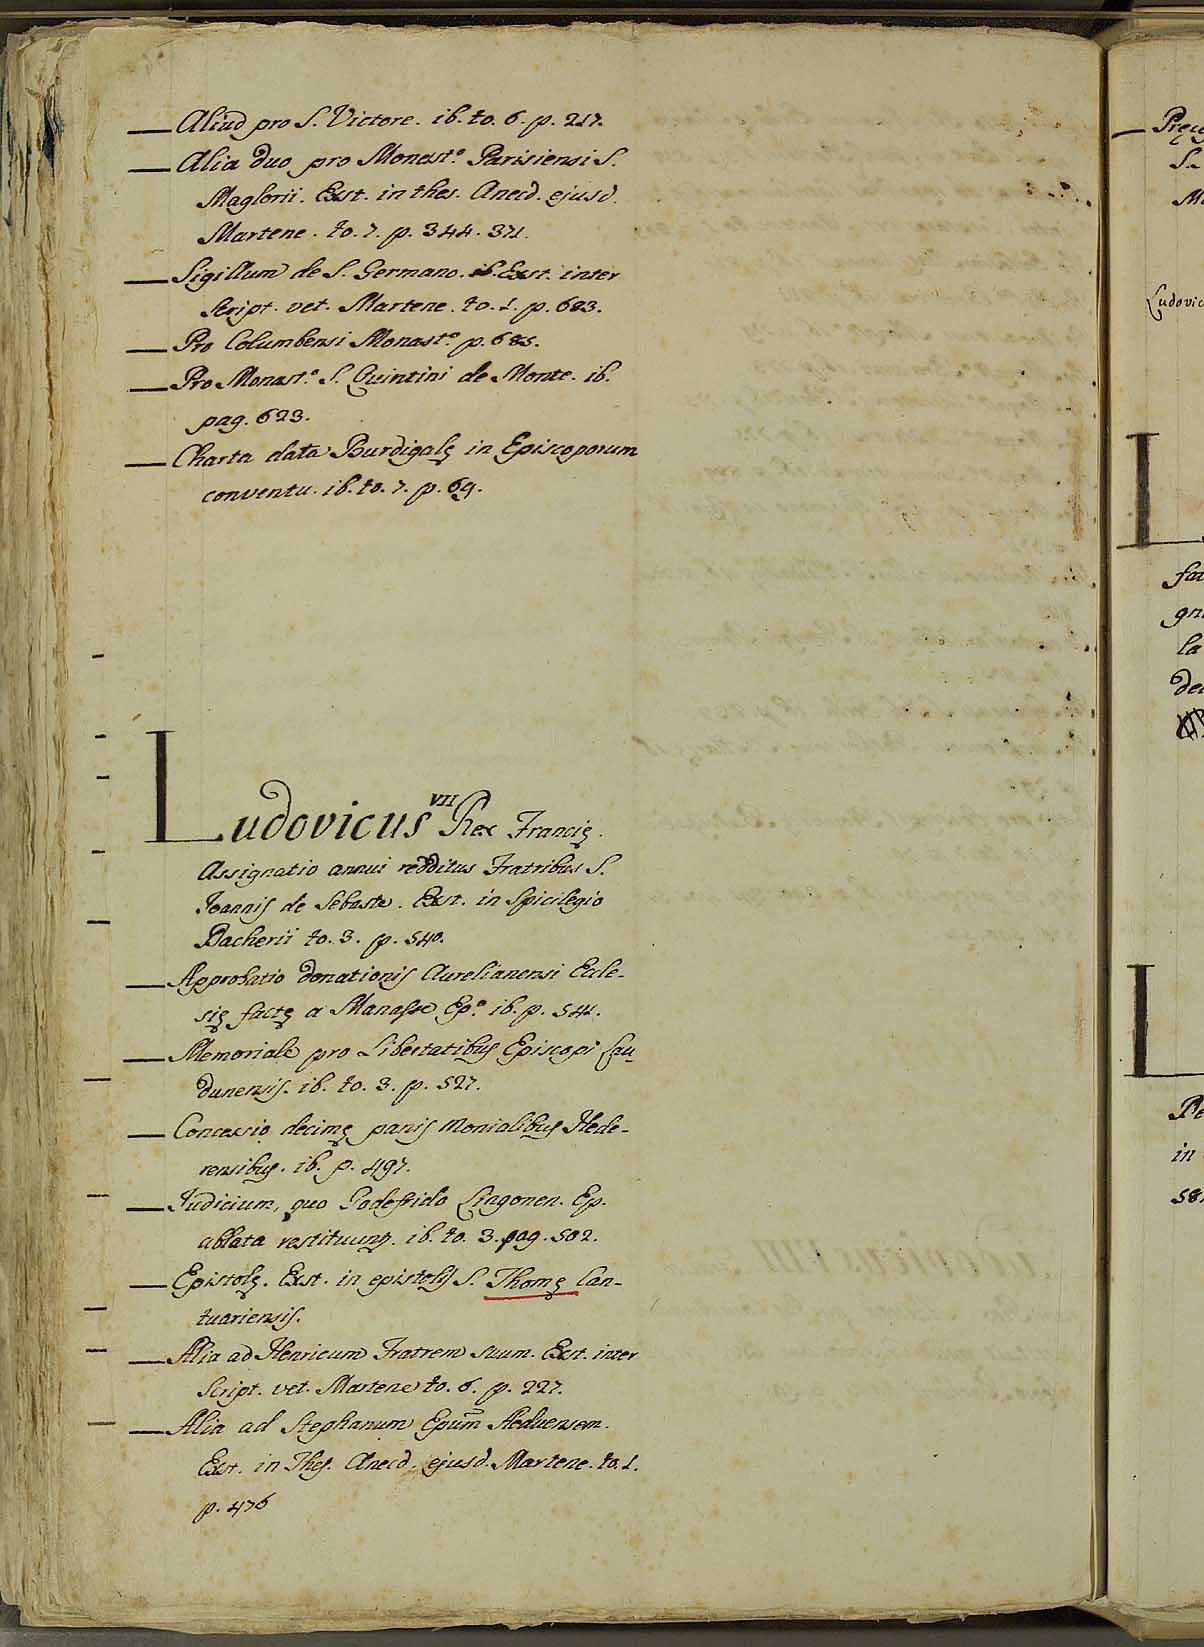 — Aliud pro S. Victore. ib. to. 6. p. 217.
— Alia duo pro Monast.º Parisiensi S.
Maglorii. Exst. in thes. Anecd. ejusd.
Martene. to. 7. p. 344. 371.
— Sigillum de S. Germano. ib. Exst. inter
Script. vet. Martene. to. 1. p. 683.
— Pro Columbensi Monast.º p. 685.
— Pro Monast.º S. Quintini de Monte. ib.
pag. 623.
— Charta data Burdigalę in Episcoporum
conventu. ib. to. 7. p. 69.
Ludovicus VII Rex Francię.
Assignatio annui redditus Fratribus S.
Joannis de Sebaste. Exst. in Spicilegio
Dacherii to. 3. p. 540.
— Approbatio donationis Aurelianensi Eccle-
się factę a Manasse Ep.º ib. p. 541.
— Memoriale pro Libertatibus Episcopi Lau
dunensis. ib. to. 3. p. 527.
— Concessio decimę panis monialibus Hede-
rensibus. ib. p. 497.
— Judicium, quo Godefrido Lingonen. Ep.
ablata restituunt. ib. to. 3. pag. 502.
— Epistolę. Exst. in epistolis S. Thomę Can-
tuariensis.
— Alia ad Henricum Fratrem suum. Exst. inter
Script. vet. Martene to. 6. p. 227.
— Alia ad Stephanum Epum̄ Aeduensem.
Exst. in Thes. Anecd. ejusd. Martene. to. 1.
p. 476
S.
Ludovic
L
fa
gn
la
de
L
Pe
in